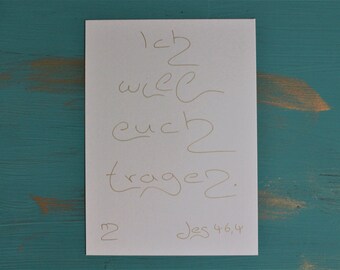 Ich
will
euch
tragen.
Jes 46,4